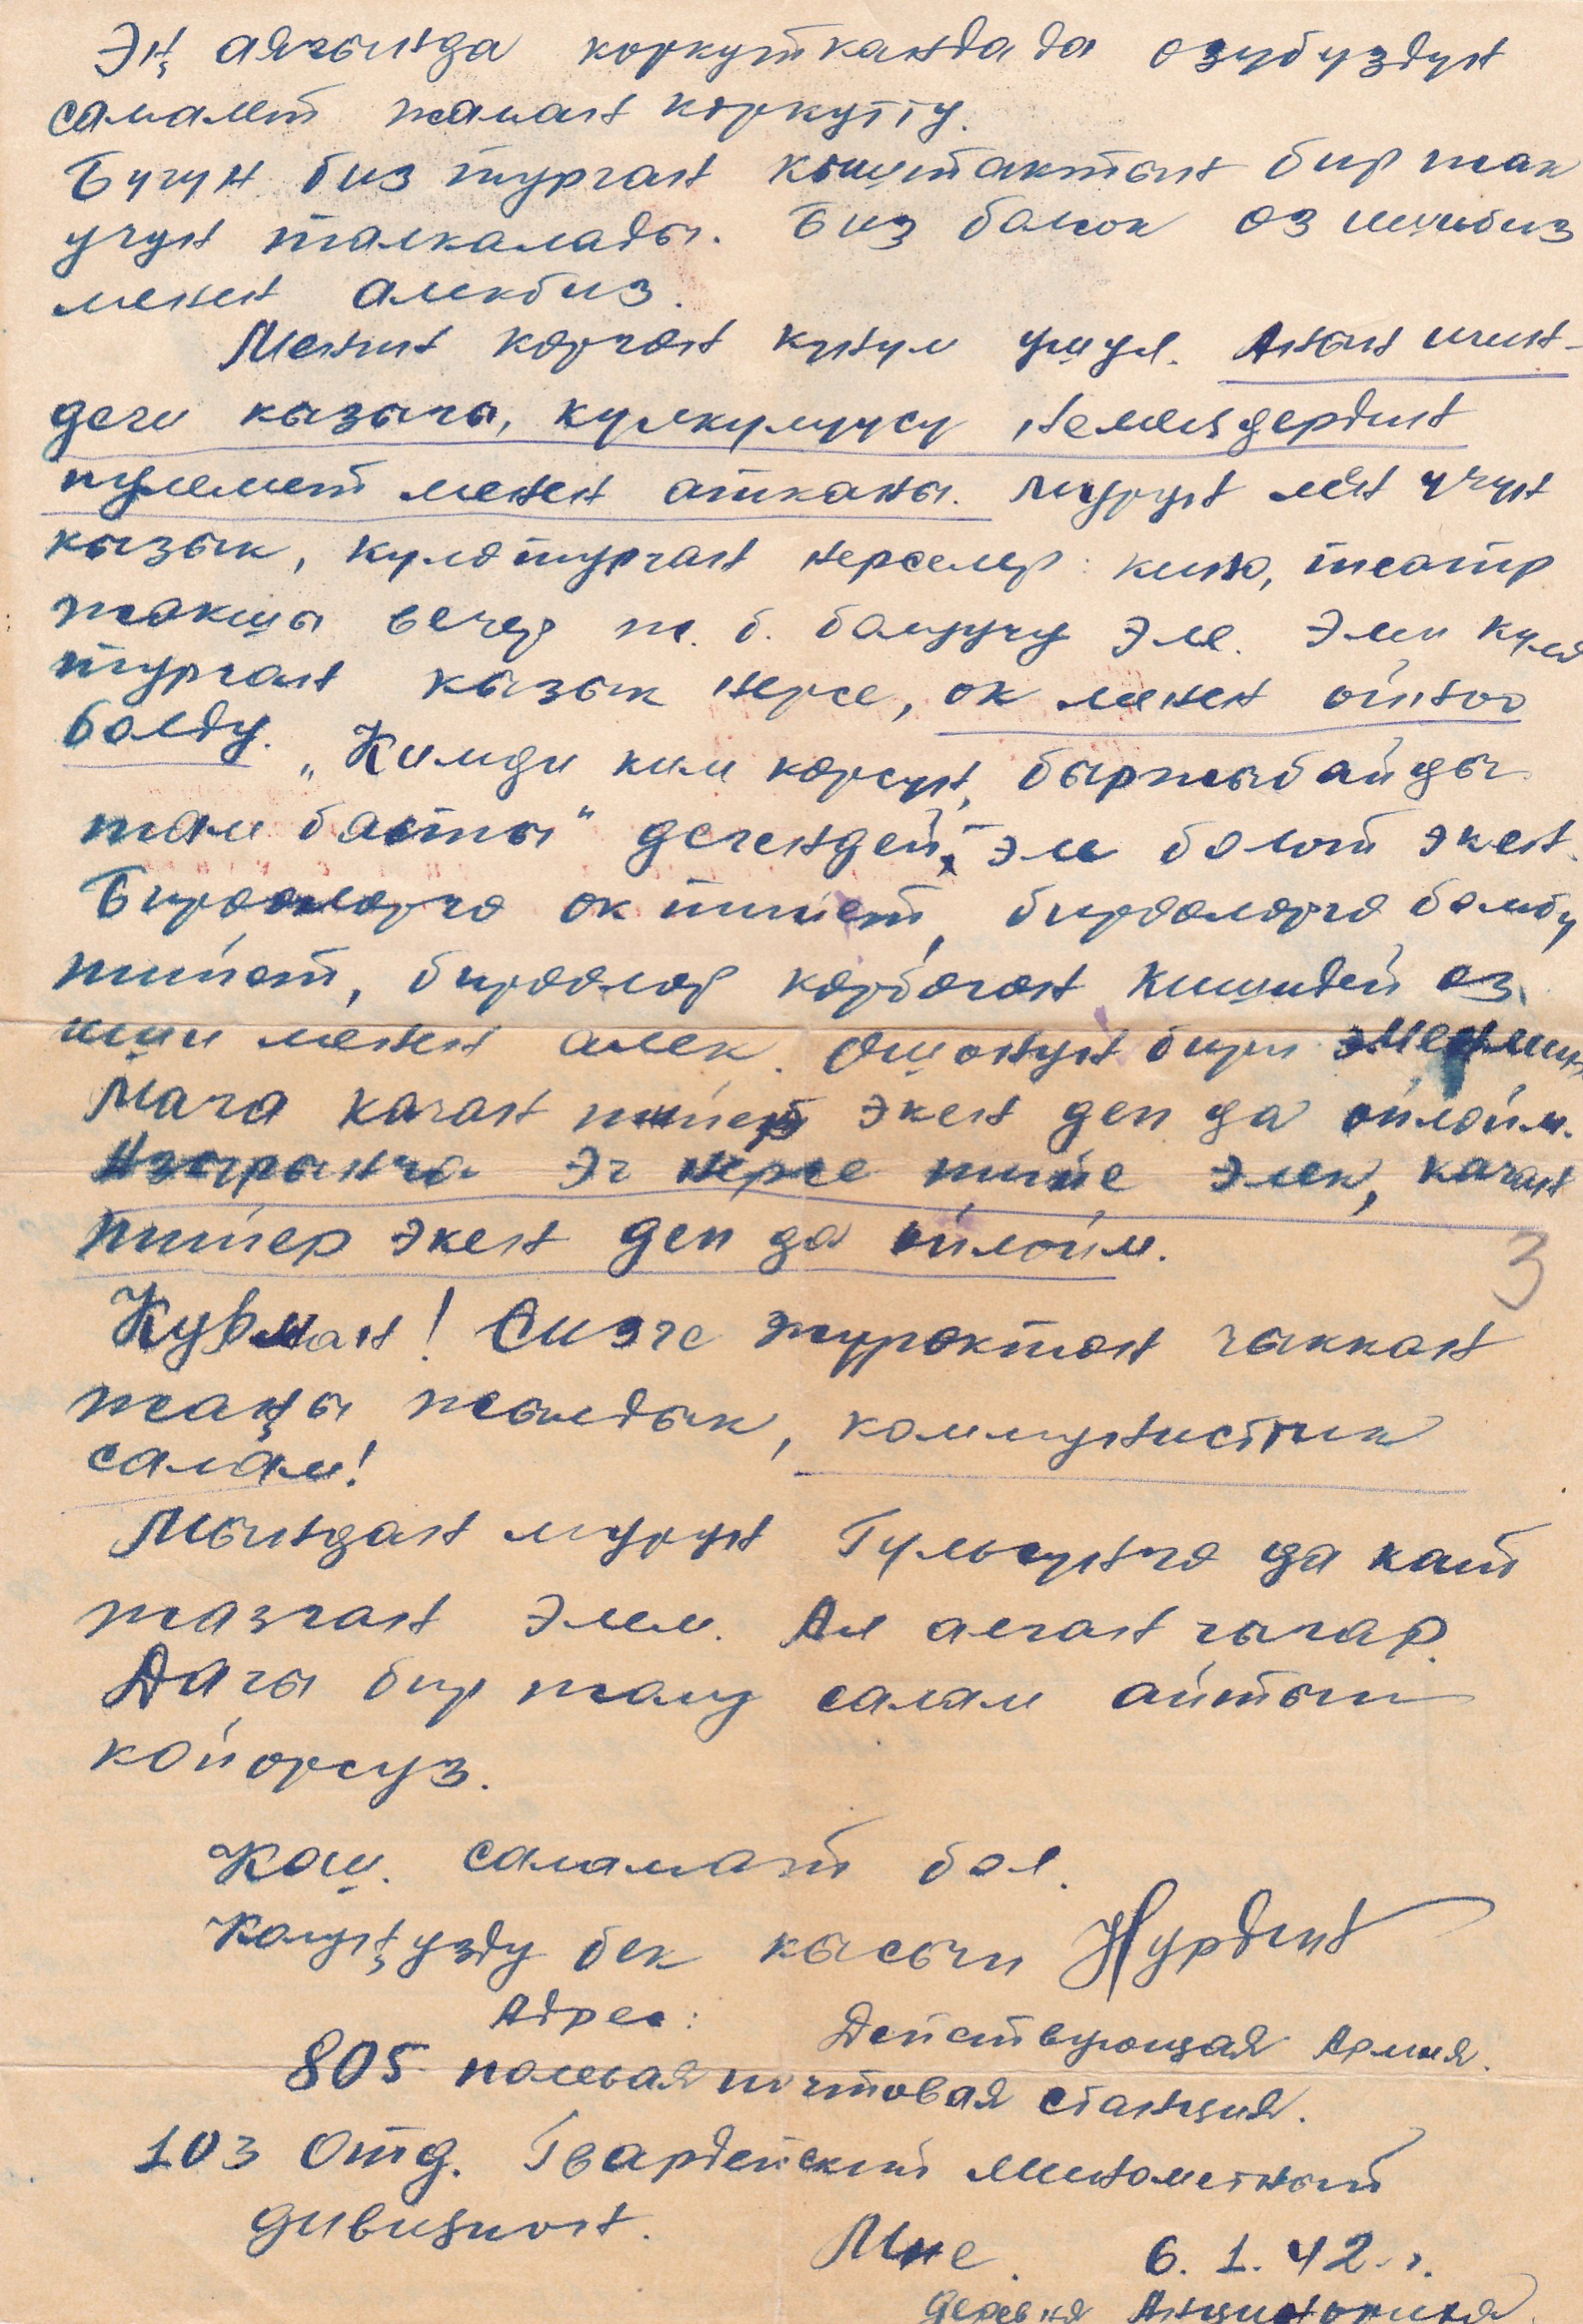 Эң аягында коркутканда да өзүбүздүн
самалет жаман коркутту.
Бүгүн биз турган кыштактын бир жак
учун талкалады. Биз болсок өз ишибиз
менен алекбиз.
Менин көргөн күнүм ушул. Анын ичин-
деги кызыгы, күлкүлүүсү немецдердин
пулемет менен атканы. Мурун мен үчүн
кызык, күлө турган нерселер: кино, театр
жакшы вечер ж. б. болуучу эле. Эми күлө
турган кызык нерсе, ок менен ойноо
болду. „Кимди ким көрсүн, быржыбайды
там басты" дегендей, эле болот экен.
Бирөөлөргө ок тийет, бирөөлөргө бомбу
тийет, бирөөлөр көрбөгөн кишидей өз
иши менен алек. Ошонун бири эмесмин
Мага качан тиет экен деп да ойлойм.
Азырынча эч нерсе тийе элек, качан
тийер экен деп да ойлойм.
3
Курман! Сизге жүрөктөн чыккан
жаңы жылдык, коммунистик
салам!
Мындан мурун Гульсунга да кат
жазган элем. Ал алган чыгар.
Дагы бир жолу салам айтып
койорсуз.
Кош. саламат бол.
Колуңузду бек кысып Нурдин
Адрес: Действующая Армия.
805 полевая почтовая станция.
103 Отд. Гвардейский минометный
дивизион.
Мне. 6. 1. 42 г.
деревня